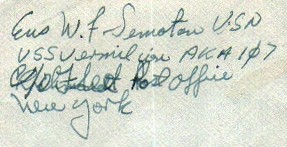 Ens W. F. Semotan USN
USS Vermilion AKA 107
c/o Fleet Post Office
New York